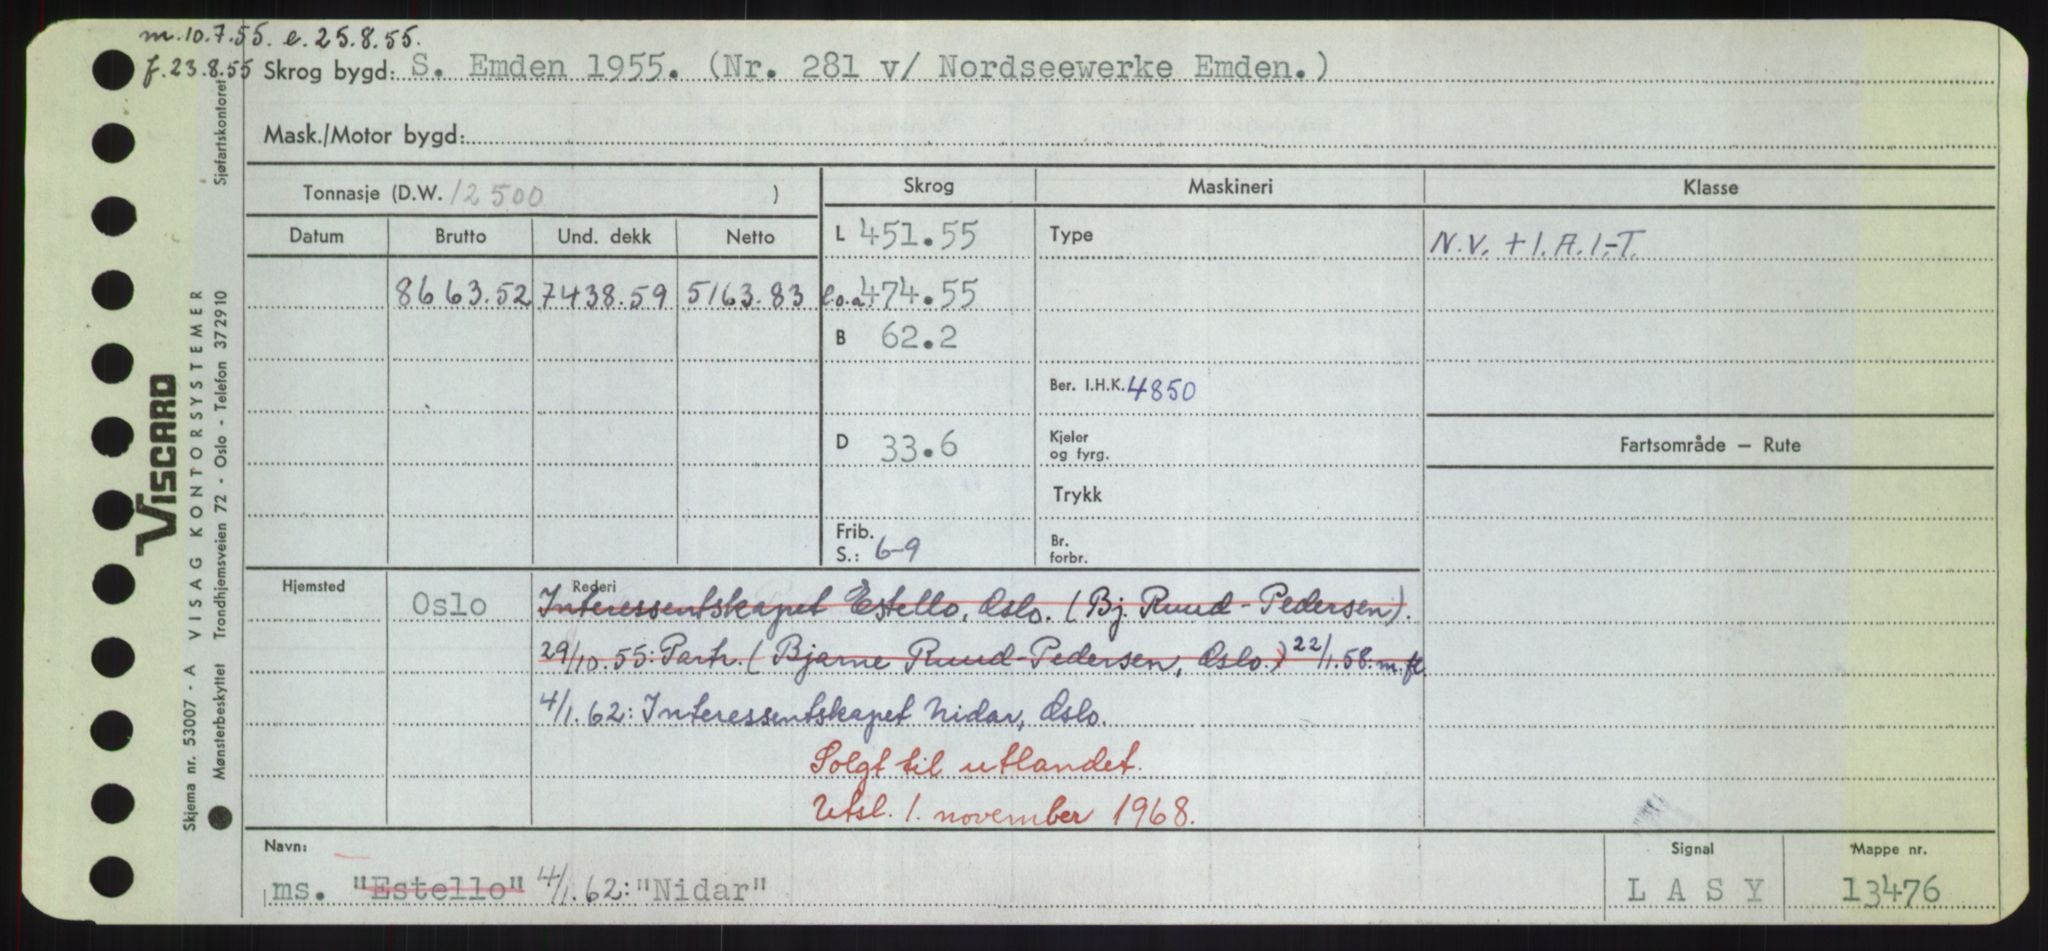 m. 10.7.55. e. 25.8.55.
f. 23.8.55 Skrog bygd: S. Emden 1955. (Nr. 281 v/ Nordseewerke Emden.)
Mask./Motor bygd:
Tonnasje (D.W. 12500 )
Skrog Maskineri Klasse
Datum Brutto Und. dekk Netto
L 451.55 Type N.V. + 1.A.1.-T.
8663.52 7438.59 5163.83 l.o.a. 474.55
B 62.2
Ber. I.H.K. 4850
D 33.6 Kjeler og fyrg.
Fartsområde — Rute
Trykk
Frib. S.: 6-9 Br. forbr.
Hjemsted Oslo Rederi
Interessentskapet Estello, Oslo. (Bj. Ruud-Pedersen).
29/10.55: Partr. (Bjarne Ruud-Pedersen, Oslo.) 22/1.58. m. fl
4/1.62: Interessentskapet Nidar, Oslo.
Solgt til utlandet.
Utsl. 1. november 1968.
Navn: Signal Mappe nr.
ms. "Estello" 4/1.62: "Nidar" LASY 13476
VISCARD
Skjema nr. 53007 - A VISAG KONTORSYSTEMER
Mønsterbeskyttet Trondhjemsveien 72 - Oslo - Telefon 372910
Sjøfartskontoret